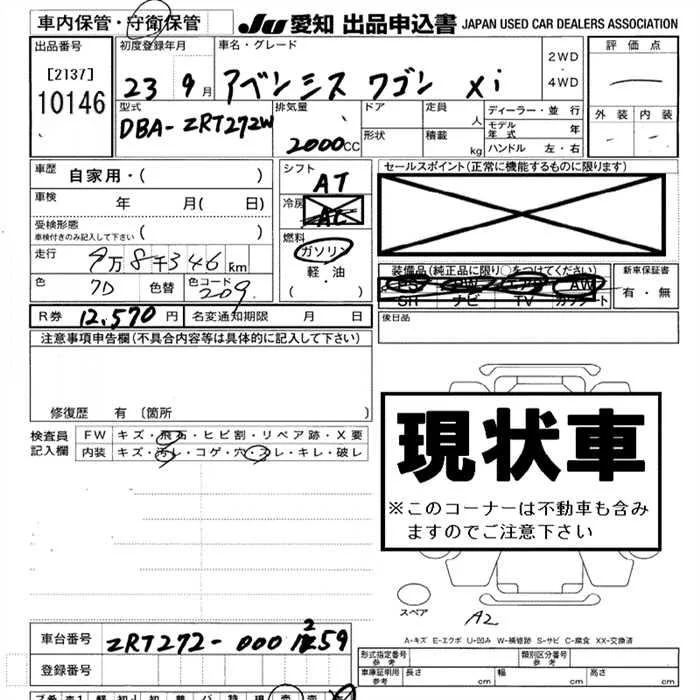 車内保管・守衛保管 JU 愛知 出品申込書 JAPAN USED CAR DEALERS ASSOCIATION
出品番号 初度登録年月 車名・グレード 2WD・4WD 評価点
[2137] 10146 23 9月 アベンシス ワゴン Xi
型式 排気量 ドア 定員 人 ディーラー・並行 外装 内装
DBA-ZRT272W 2000cc 形状 積載 kg モデル年式 年
ハンドル 左・右
車歴 自家用・( ) シフト AT セールスポイント(正常に機能するものに限ります)
車検 年 月( 日) 冷房 AC
受検形態 ( )
車検付きのみ記入して下さい
燃料 ガソリン
軽・油
・( )
走行 9万8千346km
色 7D 色替 色コード 209
装備品(純正品に限り○をつけてください) 新車保証書
PS PW エアB AW 有・無
SH ナビ TV カワシート
R券 12,570円 名変通知期限 月 日 後日品
注意事項申告欄(不具合内容等は具体的に記入して下さい)
修復歴 有(箇所 )
検査員 FW キズ・飛石・ヒビ割・リペア跡・X要
記入欄 内装 キズ・汚レ・コゲ・穴・スレ・キレ・破レ
現状車
※このコーナーは不動車も含み
ますのでご注意下さい
スペア A2
A-キズ E-エクボ U-凹み W-補修跡 S-サビ C-腐食 XX-交換済
車台番号 ZRT272-000 59
登録番号
形式指定番号 参考 類別区分番号 参考
車庫証明用 参考 長さ 幅 高さ